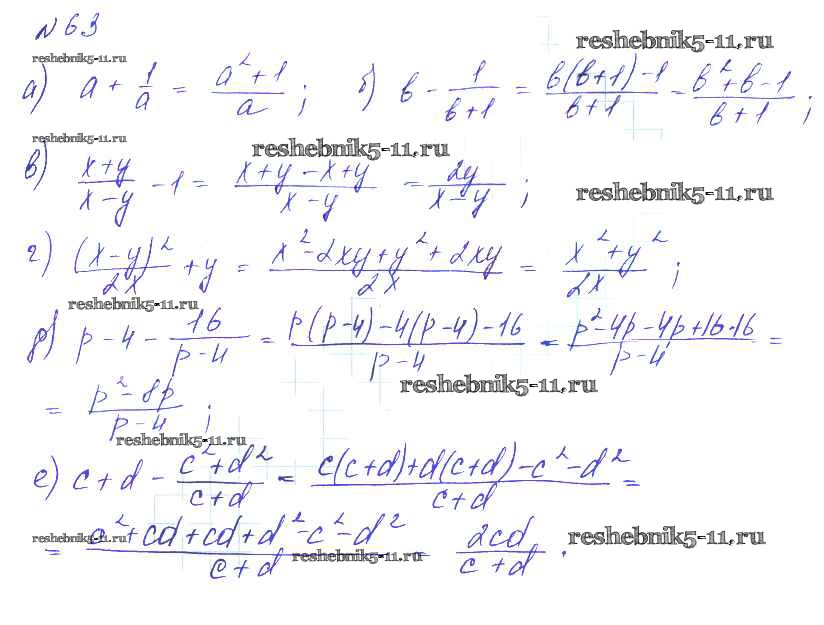 № 63
reshebnik5-11.ru
reshebnik5-11.ru
а) a + 1/a = (a² + 1)/a ; б) в - 1/(в+1) = (в(в+1) - 1)/(в+1) = (в² + в - 1)/(в+1) ;
reshebnik5-11.ru
reshebnik5-11.ru
в) (x+y)/(x-y) - 1 = (x+y - x+y)/(x-y) = 2y/(x-y) ;
reshebnik5-11.ru
г) (x-y)²/2x + y = (x² - 2xy + y² + 2xy)/2x = (x² + y²)/2x ;
reshebnik5-11.ru
д) p - 4 - 16/(p-4) = (p(p-4) - 4(p-4) - 16)/(p-4) = (p² - 4p - 4p + 16 - 16)/(p-4) =
reshebnik5-11.ru
= (p² - 8p)/(p-4) ;
reshebnik5-11.ru
е) c + d - (c² + d²)/(c+d) = (c(c+d) + d(c+d) - c² - d²)/(c+d) =
= (c² + cd + cd + d² - c² - d²)/(c+d) = 2cd/(c+d) .
reshebnik5-11.ru
reshebnik5-11.ru
reshebnik5-11.ru